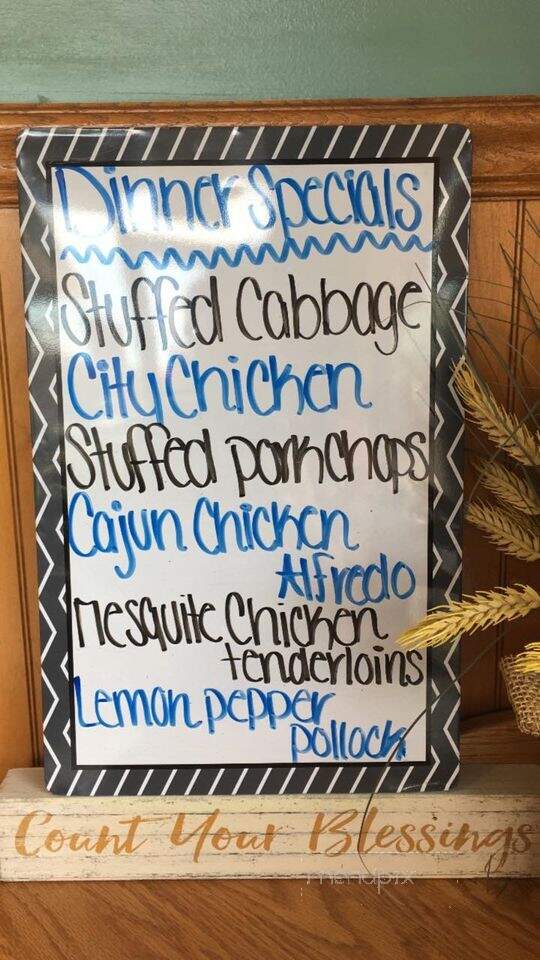 Dinner Specials
Stuffed Cabbage
City Chicken
Stuffed porkchops
Cajun Chicken
Alfredo
Mesquite Chicken
tenderloins
Lemon pepper
pollock
Count Your Blessings
menupix